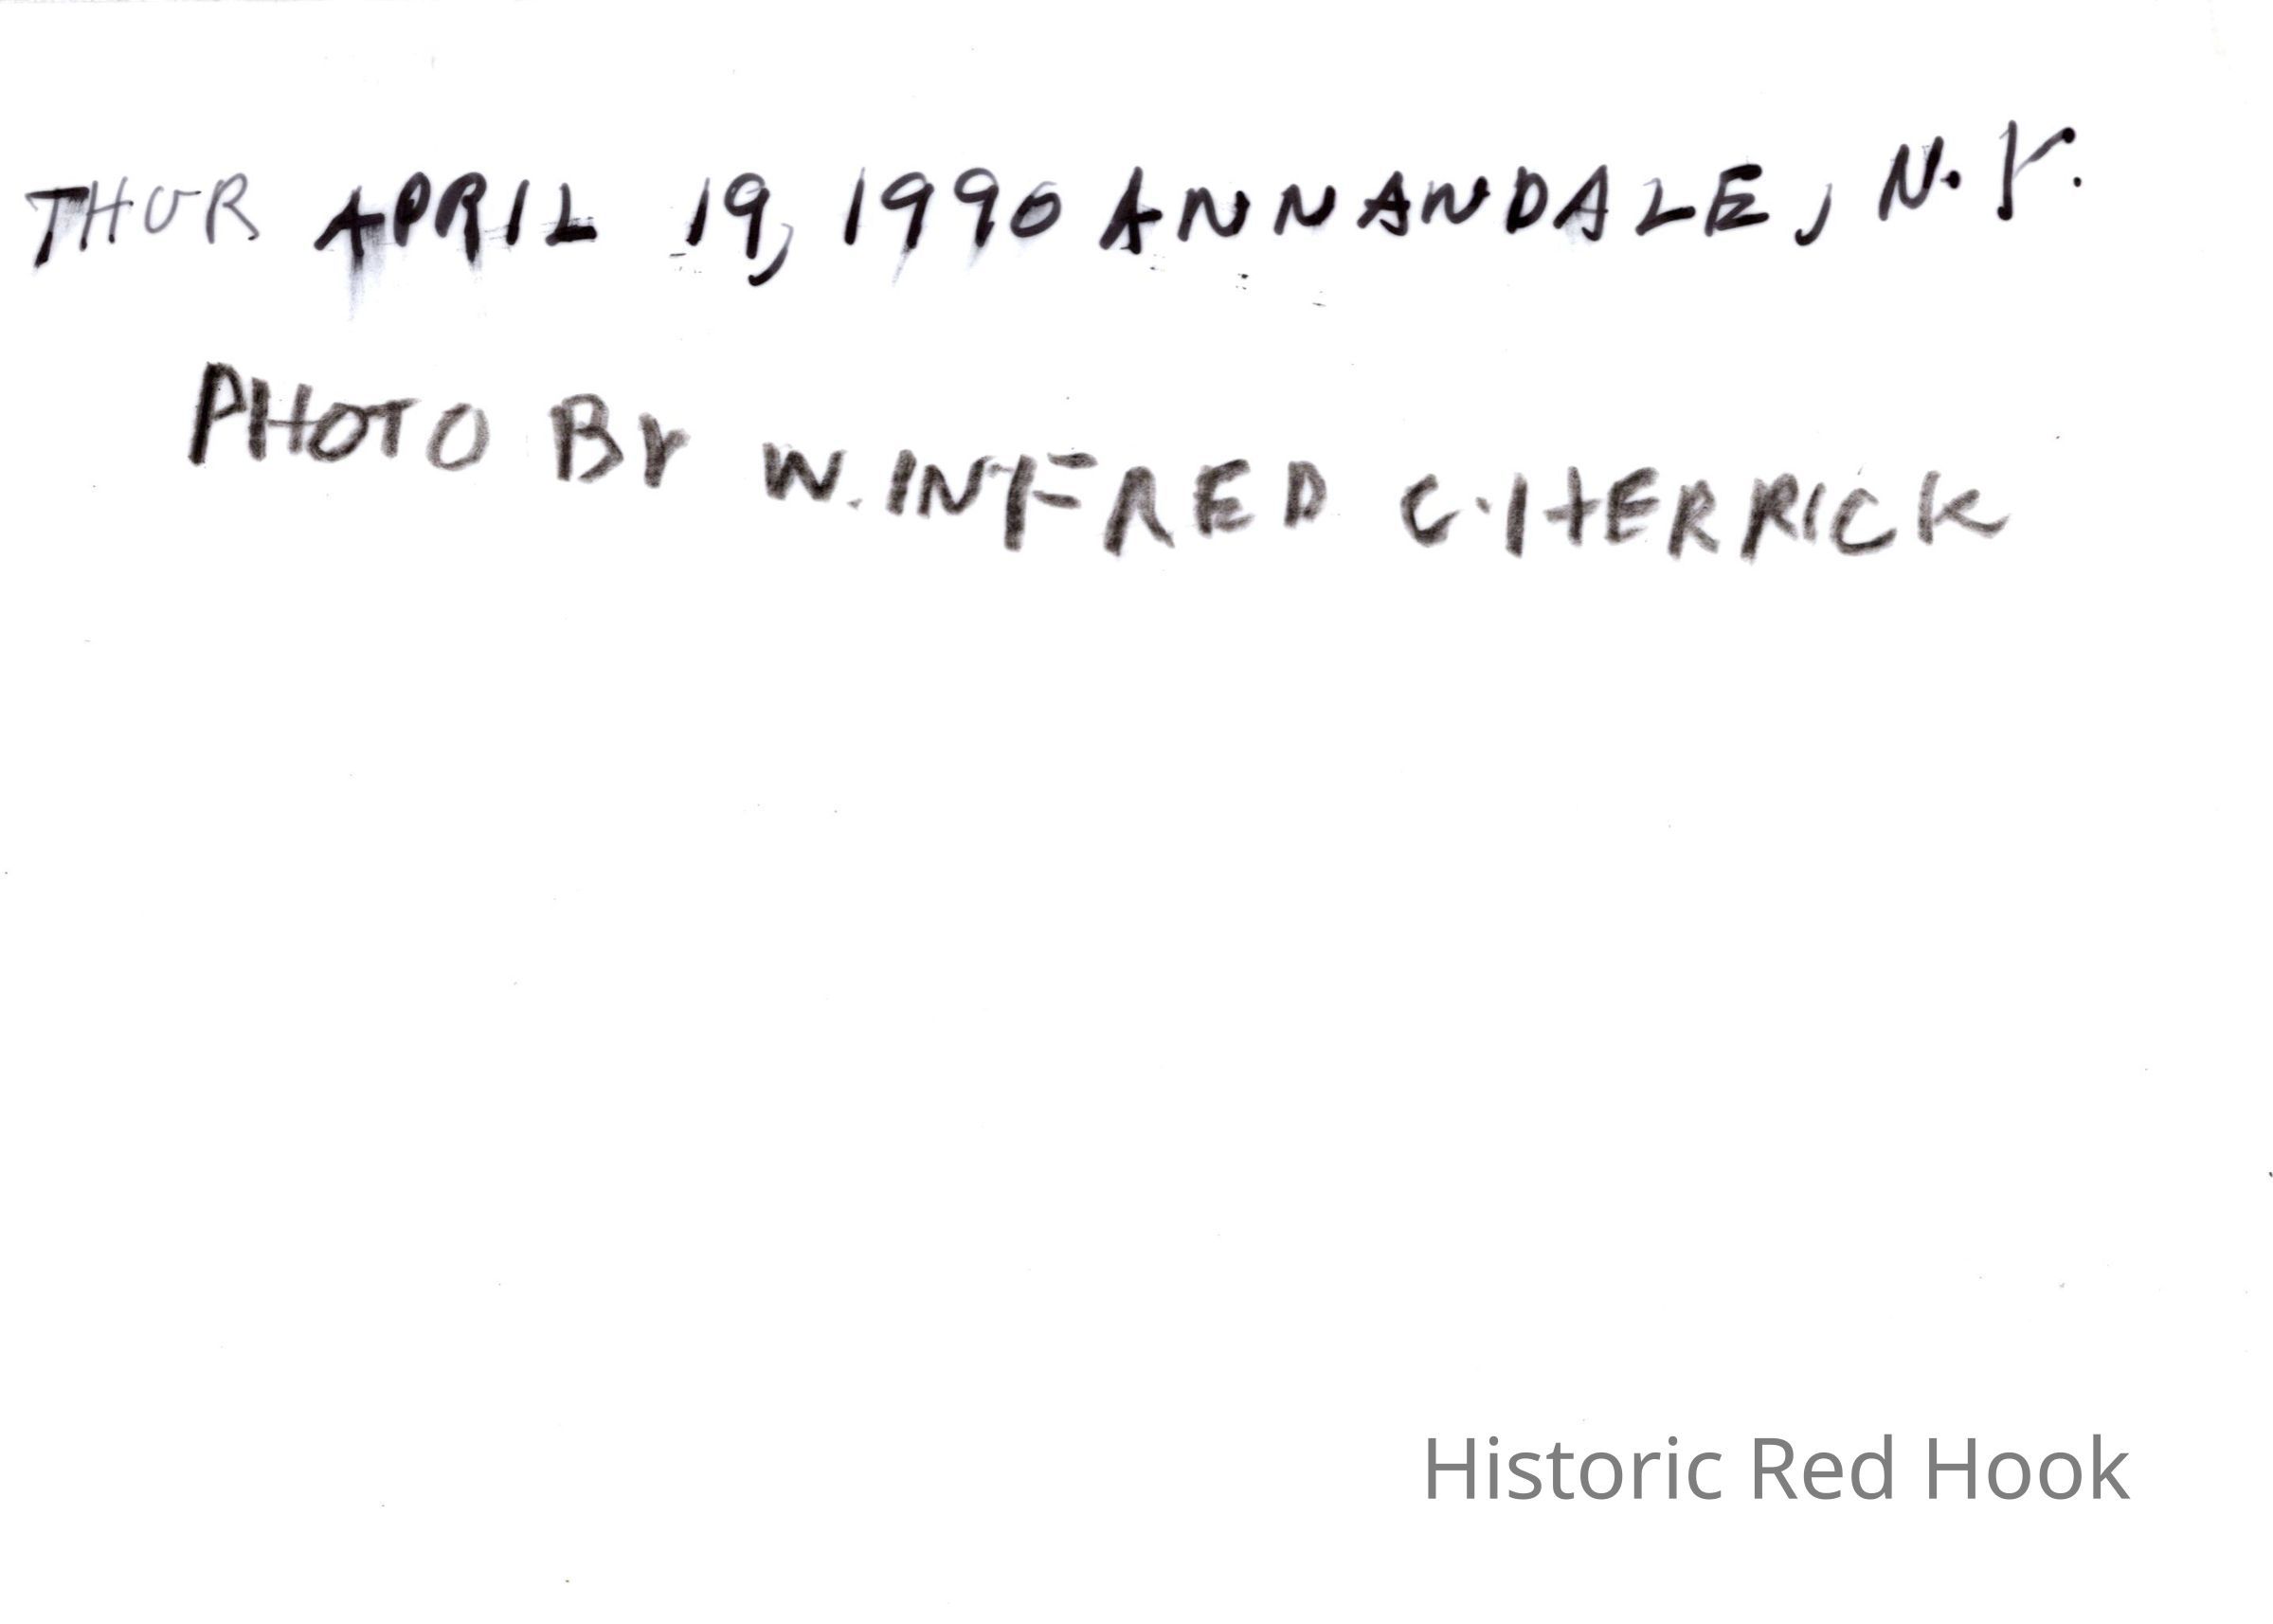 THUR APRIL 19, 1990 ANNANDALE, N.Y.
PHOTO BY W.INFRED C. HERRICK
Historic Red Hook